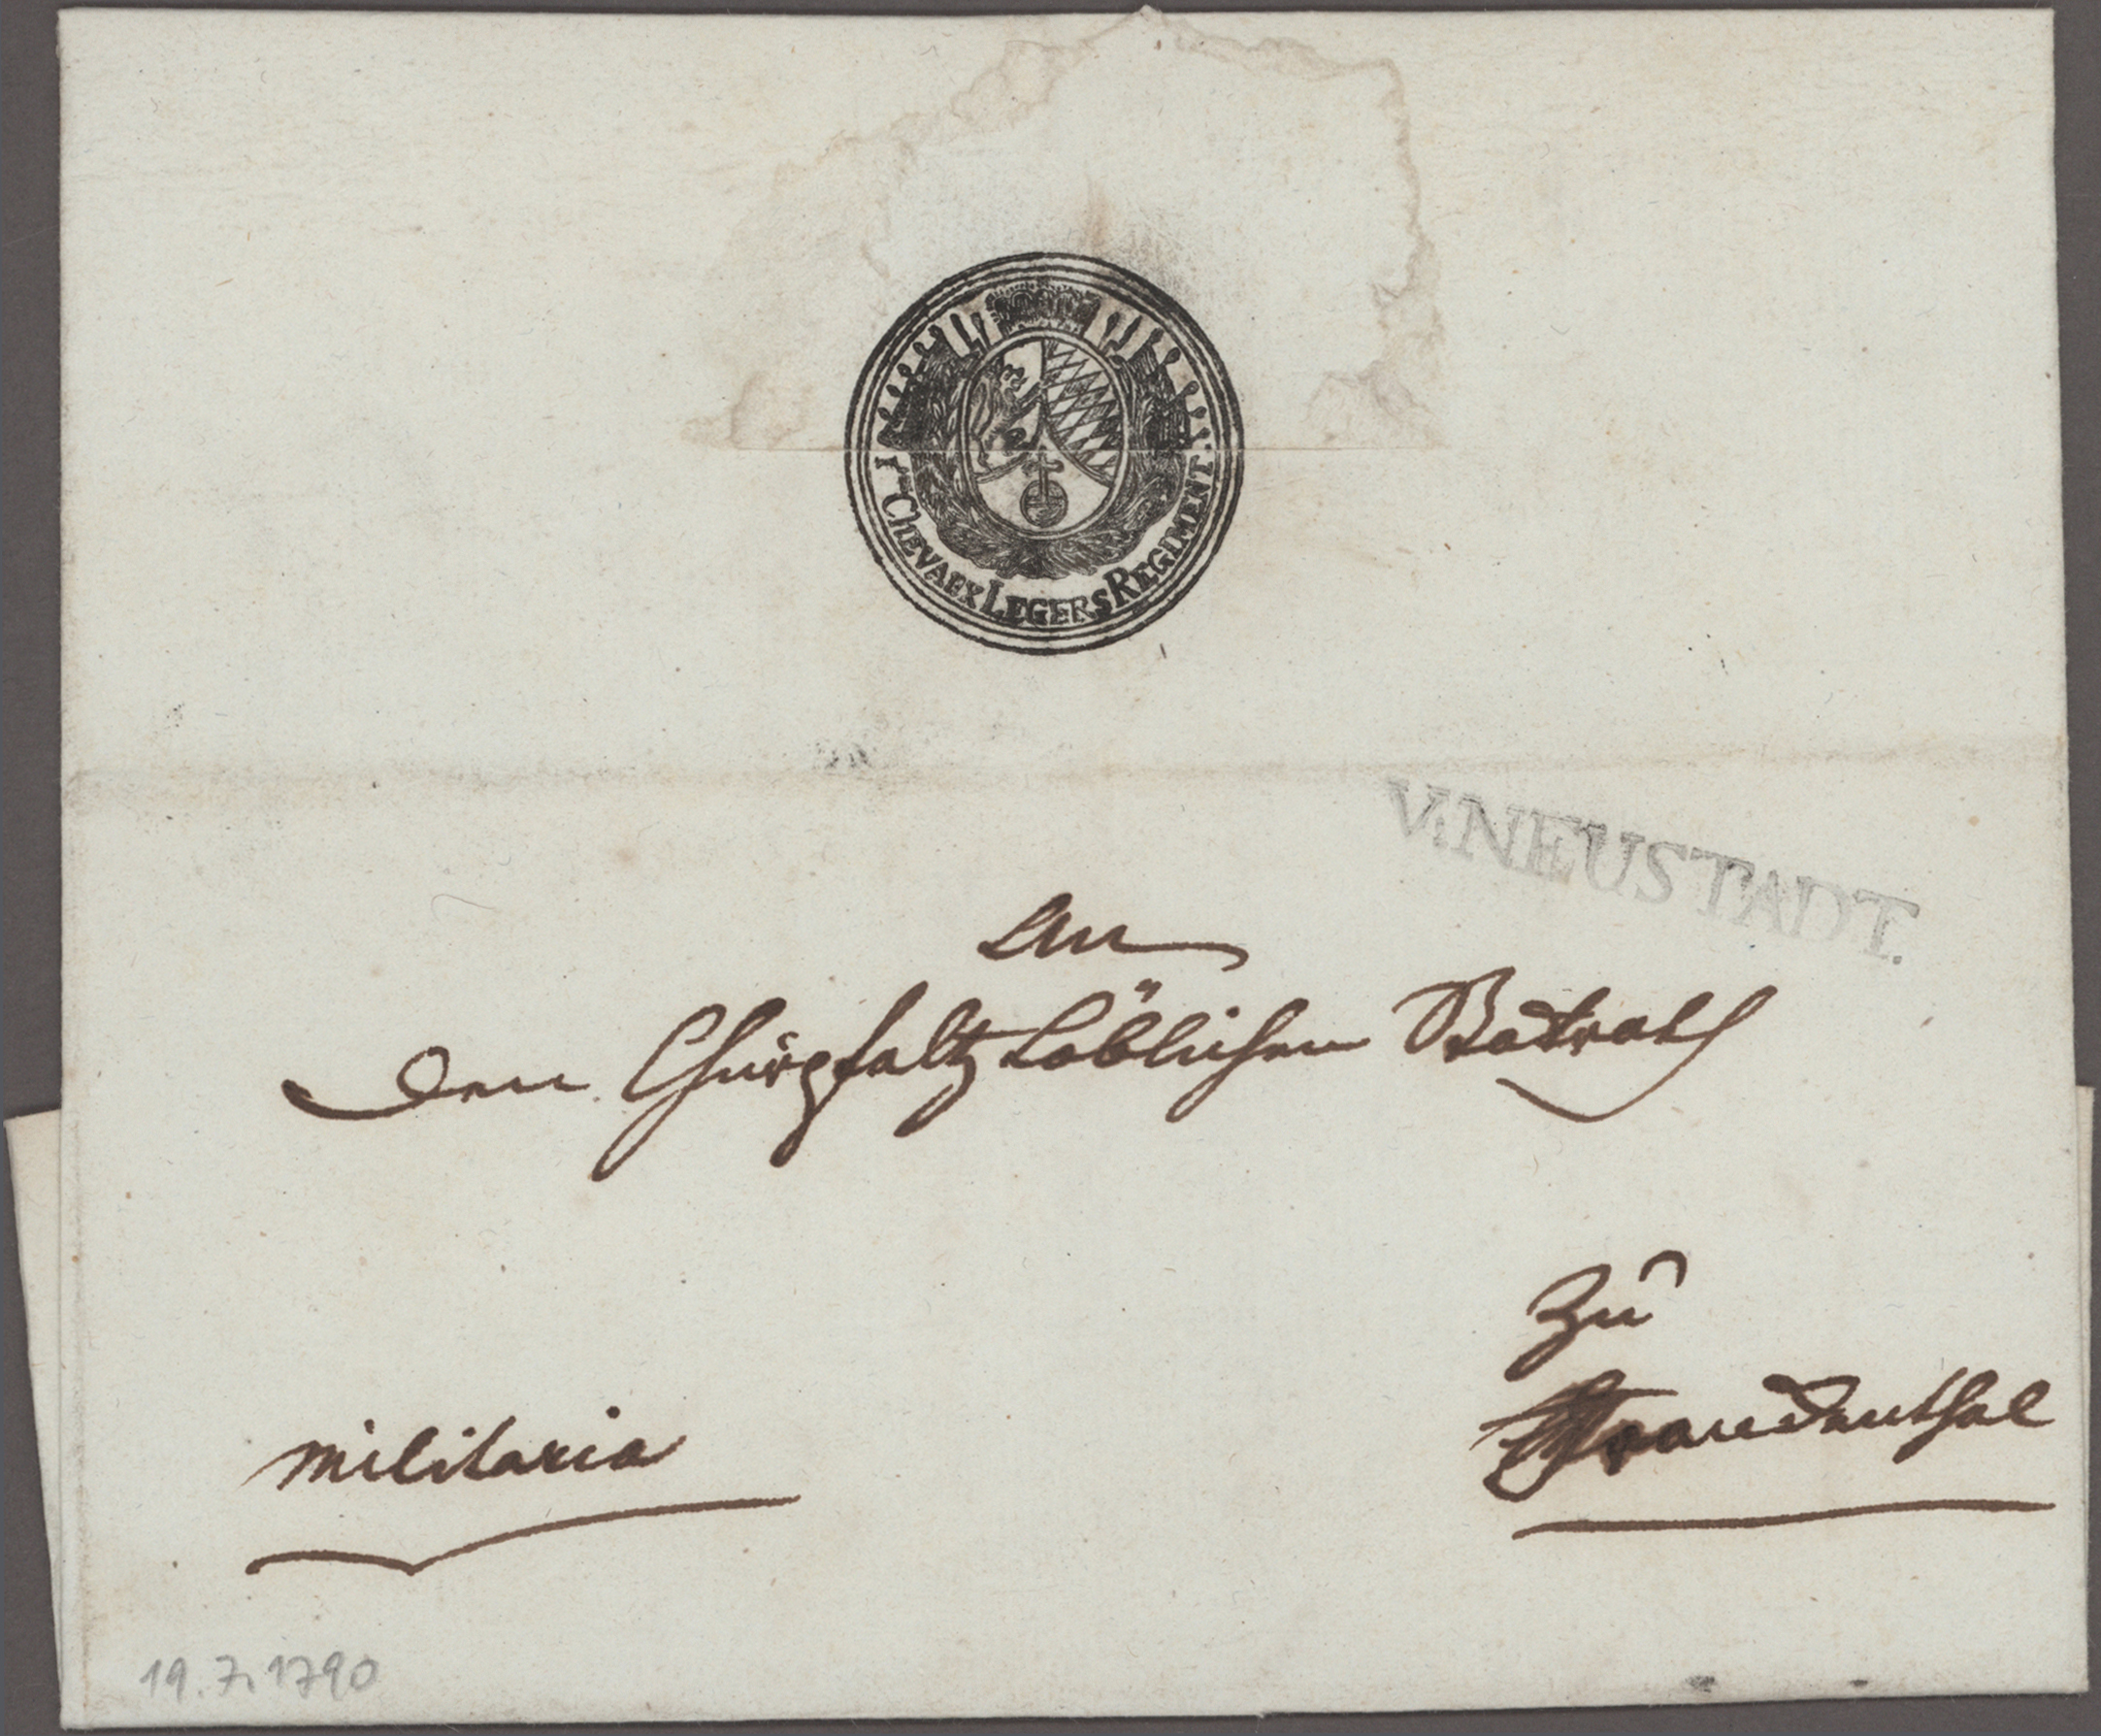 1r CHEVAUX LEGERS REGIMENT.
V. NEUSTADT.
An
Den Churpfaltz Löblichen Stadtrath
Zu
Franckenthal
militaria
19.7.1790